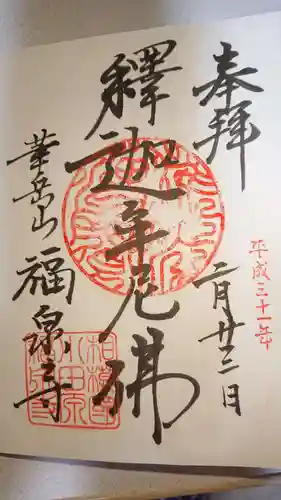 奉拝
平成三十一年
二月廿三日
釋迦牟尼佛
華岳山
福泉寺
相模
小田原